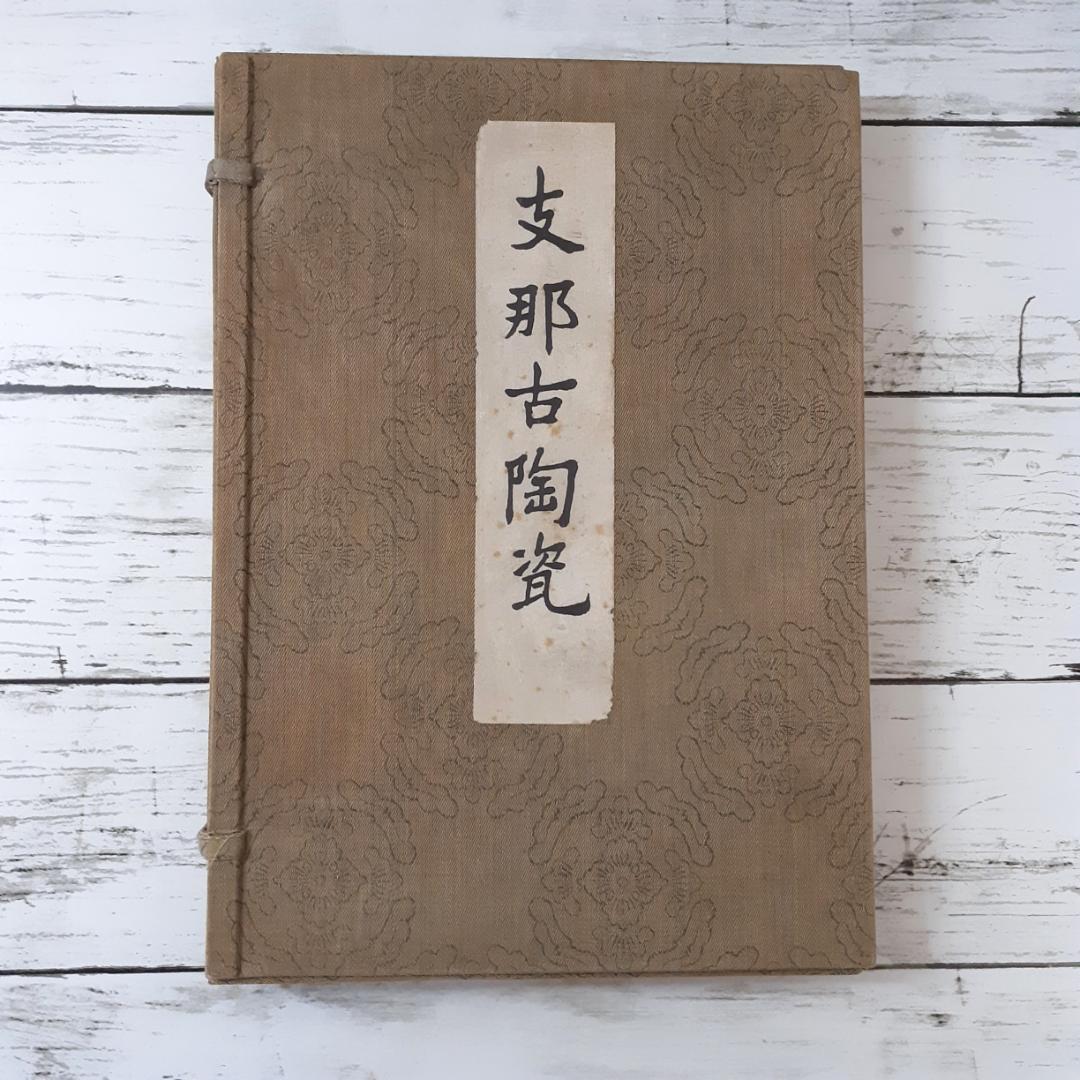 支那古陶瓷